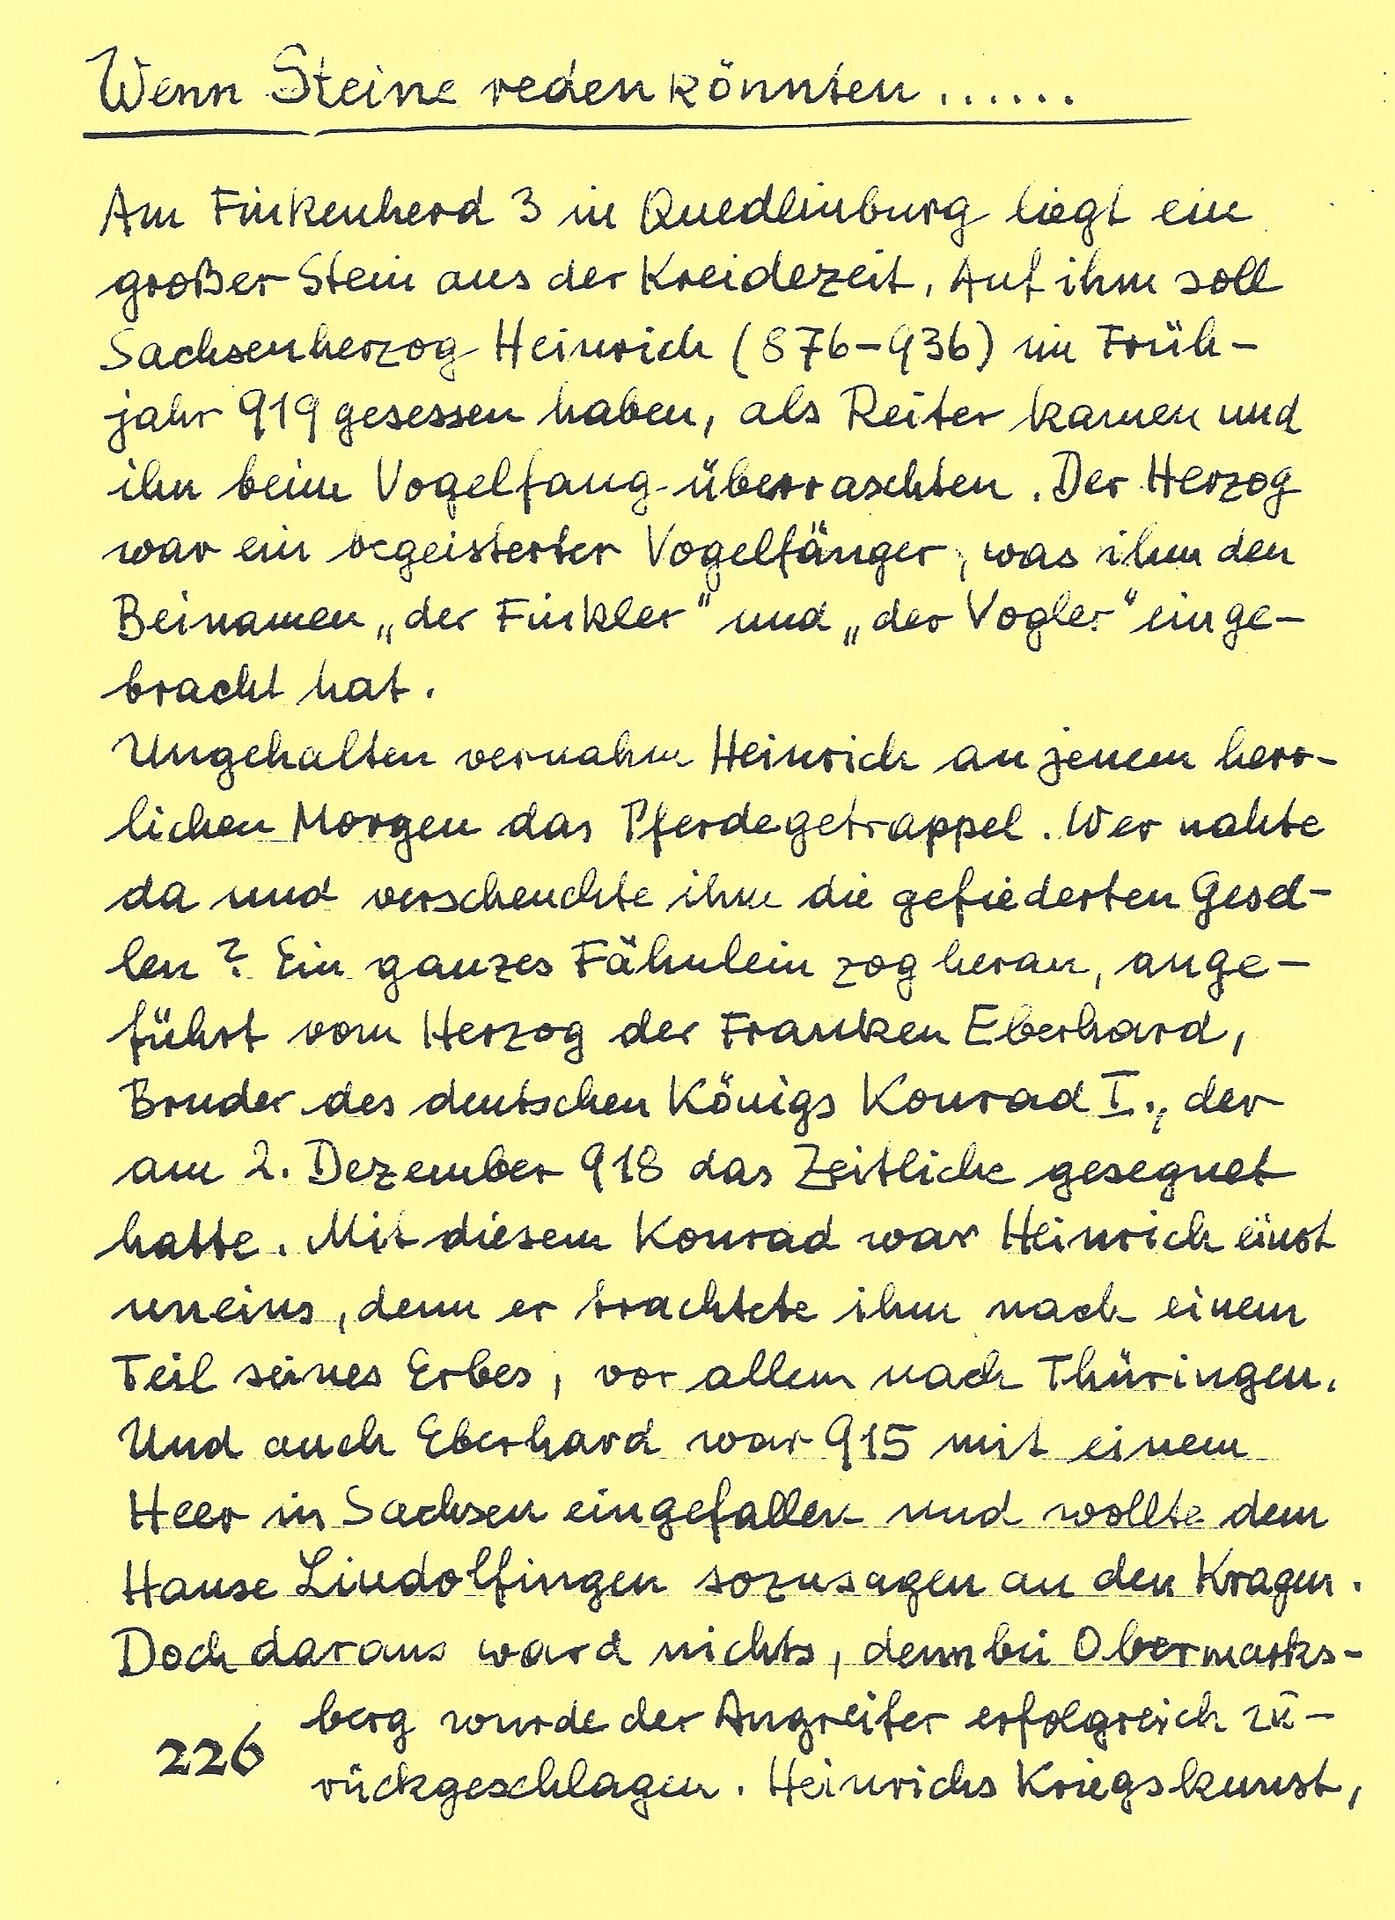 Wenn Steine reden könnten ......
Am Finkenherd 3 in Quedlinburg liegt ein
großer Stein aus der Kreidezeit. Auf ihm soll
Sachsenherzog Heinrich (876-936) im Früh-
jahr 919 gesessen haben, als Reiter kamen und
ihn beim Vogelfang überraschten. Der Herzog
war ein begeisterter Vogelfänger, was ihm den
Beinamen „der Finkler" und „der Vogler" einge-
bracht hat.
Ungehalten vernahm Heinrich an jenem herr-
lichen Morgen das Pferdegetrappel. Wer nahte
da und verscheuchte ihm die gefiederten Gesel-
len? Ein ganzes Fähnlein zog heran, ange-
führt vom Herzog der Franken Eberhard,
Bruder des deutschen Königs Konrad I., der
am 2. Dezember 918 das Zeitliche gesegnet
hatte. Mit diesem Konrad war Heinrich einst
uneins, denn er trachtete ihm nach einem
Teil seines Erbes, vor allem nach Thüringen.
Und auch Eberhard war 915 mit einem
Heer in Sachsen eingefallen und wollte dem
Hause Liudolfingen sozusagen an den Kragen.
Doch daraus ward nichts, denn bei Obermarks-
berg wurde der Angreifer erfolgreich zu-
rückgeschlagen. Heinrichs Kriegskunst,
226